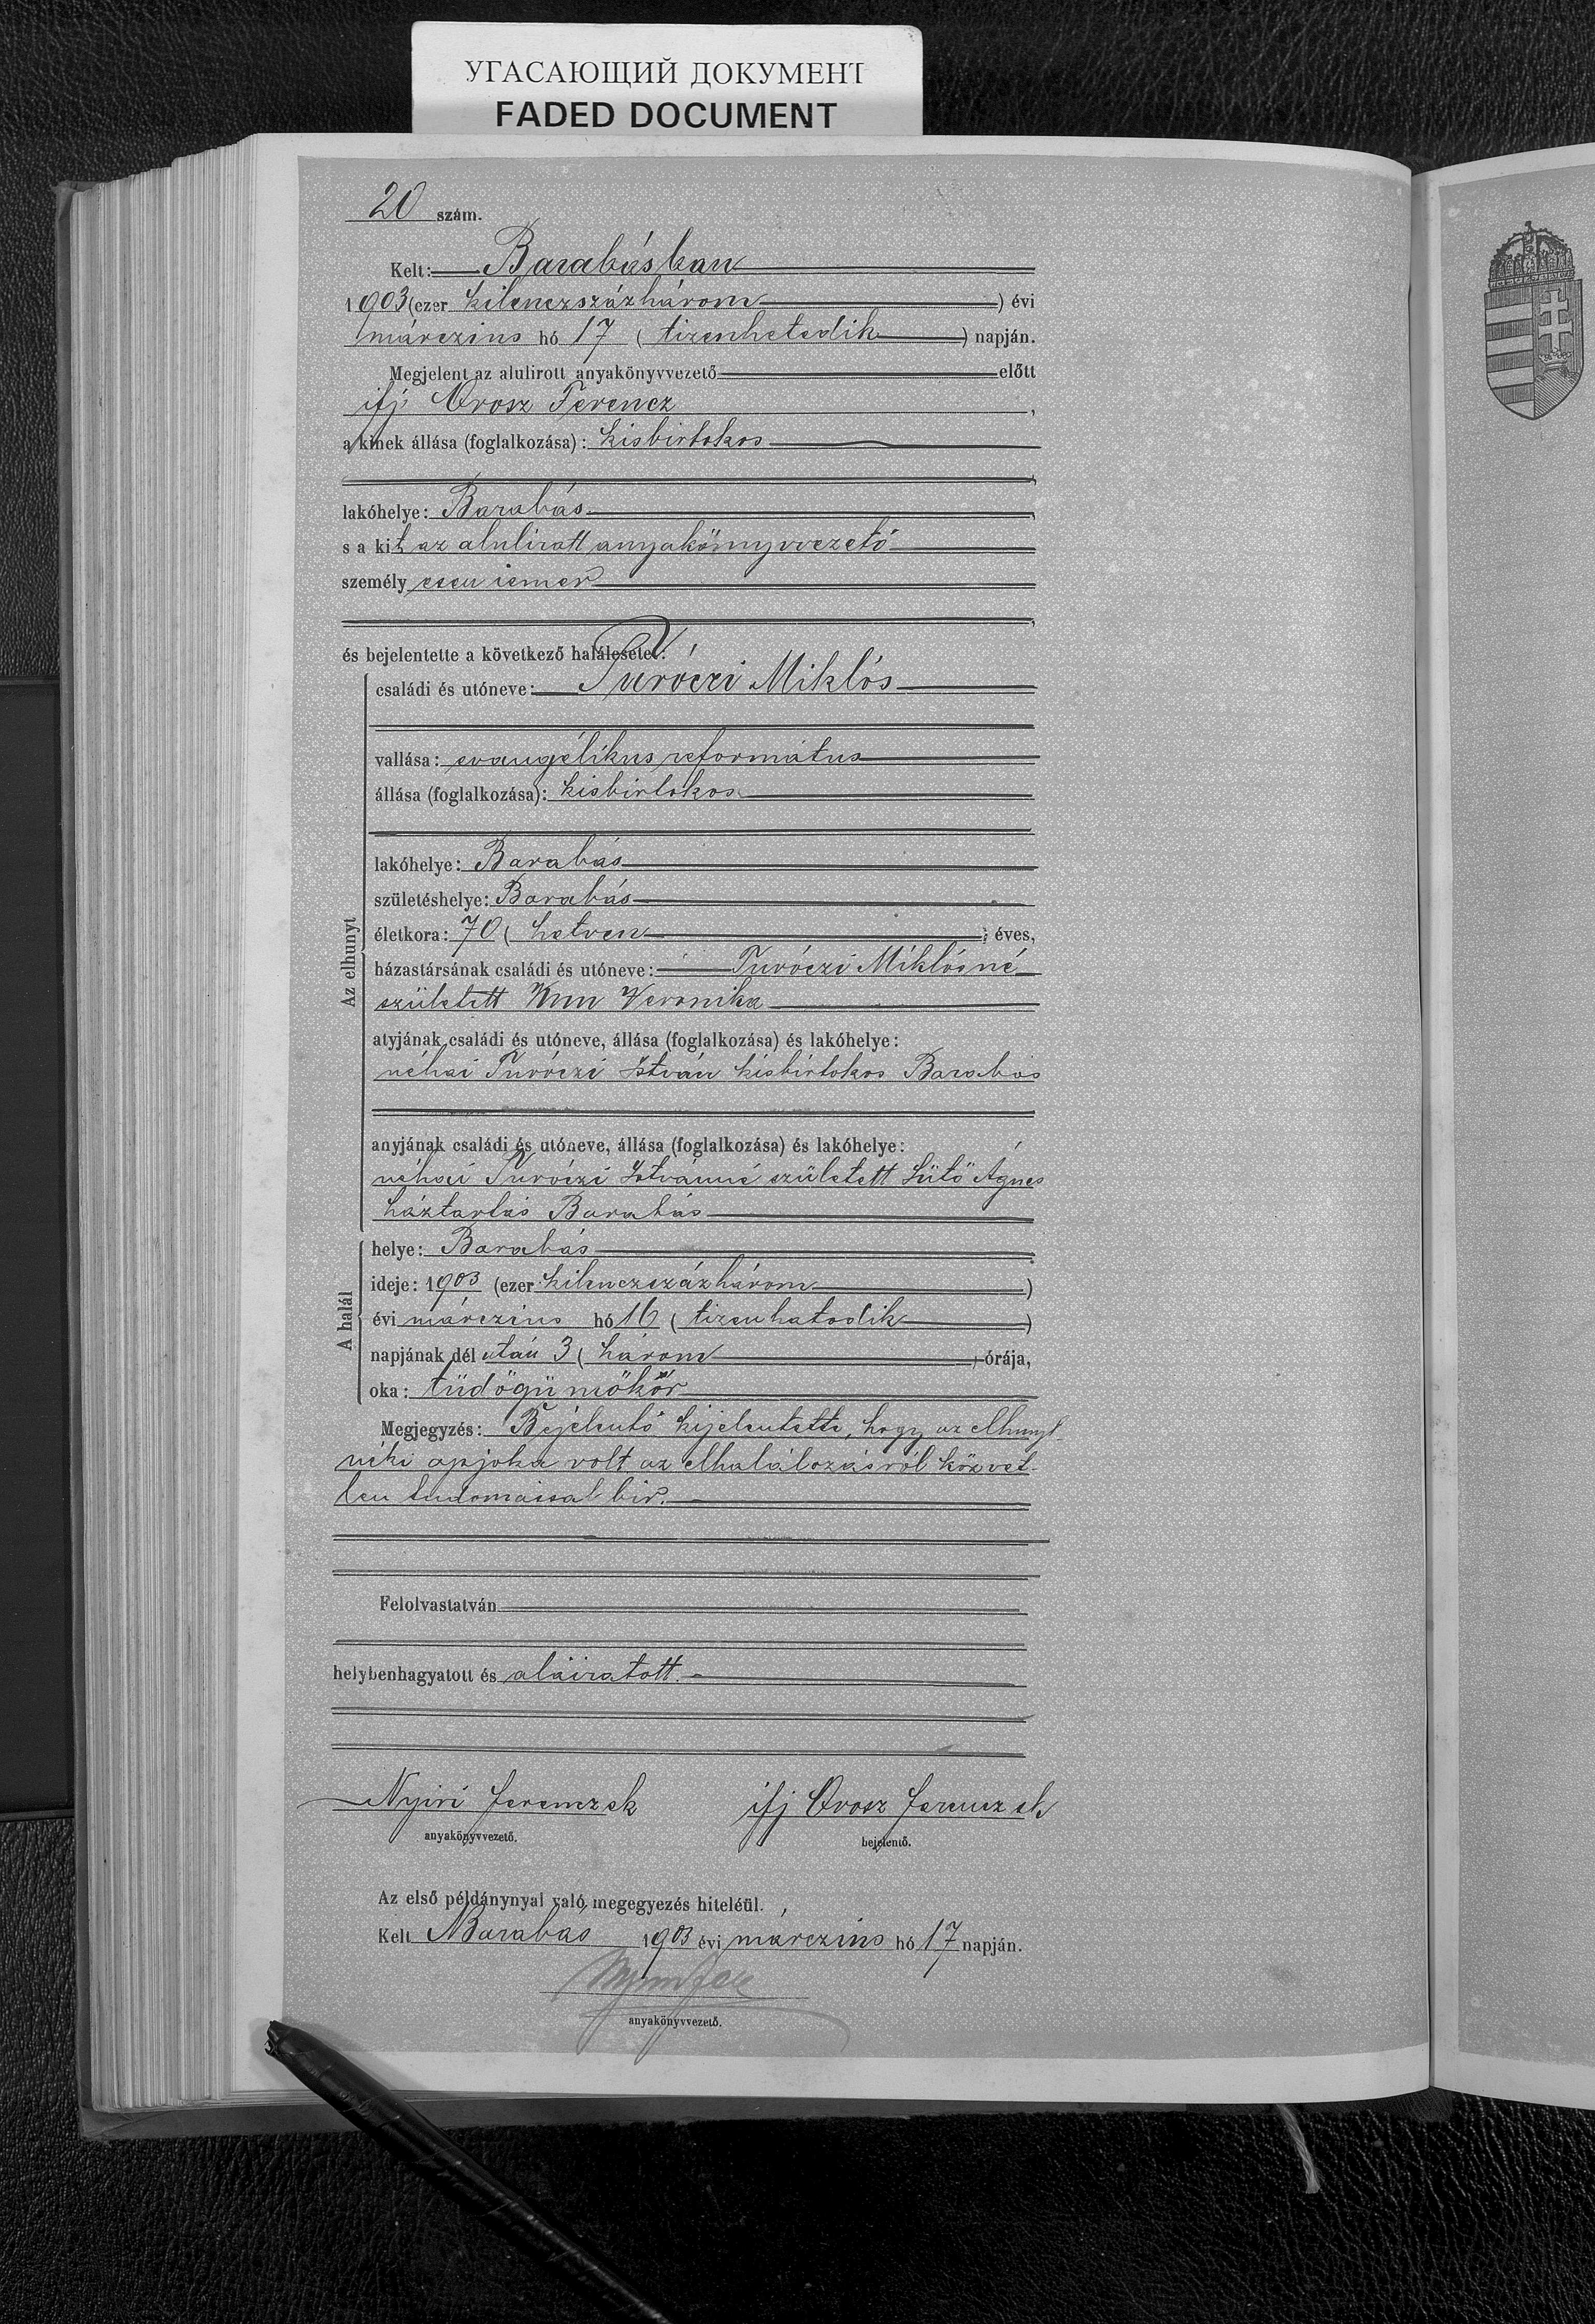 УГАСАЮЩИЙ ДОКУМЕНТ
FADED DOCUMENT
20 szám.
Kelt: Barabásban
1903 (ezer kilenczszázhárom) évi
márczius hó 17 (tizenhetedik) napján.
Megjelent az alulirott anyakönyvvezető előtt
ifj Orosz Ferencz,
a kinek állása (foglalkozása): kisbirtokos
lakóhelye: Barabás,
s a kit az alulirott anyakönyvvezető
személyesen ismer
és bejelentette a következő halálesetet:
Az elhunyt
családi és utóneve: Turóczi Miklós
vallása: evangélikus református
állása (foglalkozása): kisbirtokos
lakóhelye: Barabás
születéshelye: Barabás
életkora: 70 (hetven) éves,
házastársának családi és utóneve: Turóczi Miklósné
született Kun Veronika
atyjának családi és utóneve, állása (foglalkozása) és lakóhelye:
néhai Turóczi István kisbirtokos Barabás
anyjának családi és utóneve, állása (foglalkozása) és lakóhelye:
néhai Turóczi Istvánné született Sütő Ágnes
háztartás Barabás
A halál
helye: Barabás
ideje: 1903 (ezer kilenczszázhárom)
évi márczius hó 16 (tizenhatodik)
napjának dél után 3 (három) órája,
oka: tüdőgümőkór
Megjegyzés: Bejelentő kijelentette, hogy az elhunyt
néki apjoka volt, az elhalálozásról közvet-
len tudomással bir.
Felolvastatván
helybenhagyatott és aláiratott.
Nyiri Ferencz sk ifj Orosz Ferencz sk
anyakönyvvezető. bejelentő.
Az első példánynyal való megegyezés hiteléül.
Kelt Barabás 1903 évi márczius hó 17 napján.
anyakönyvvezető.